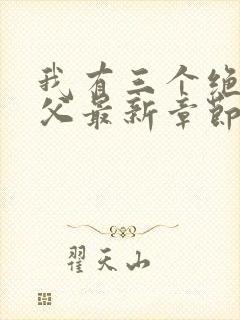 我有三个绝
父最新章节
翟天山